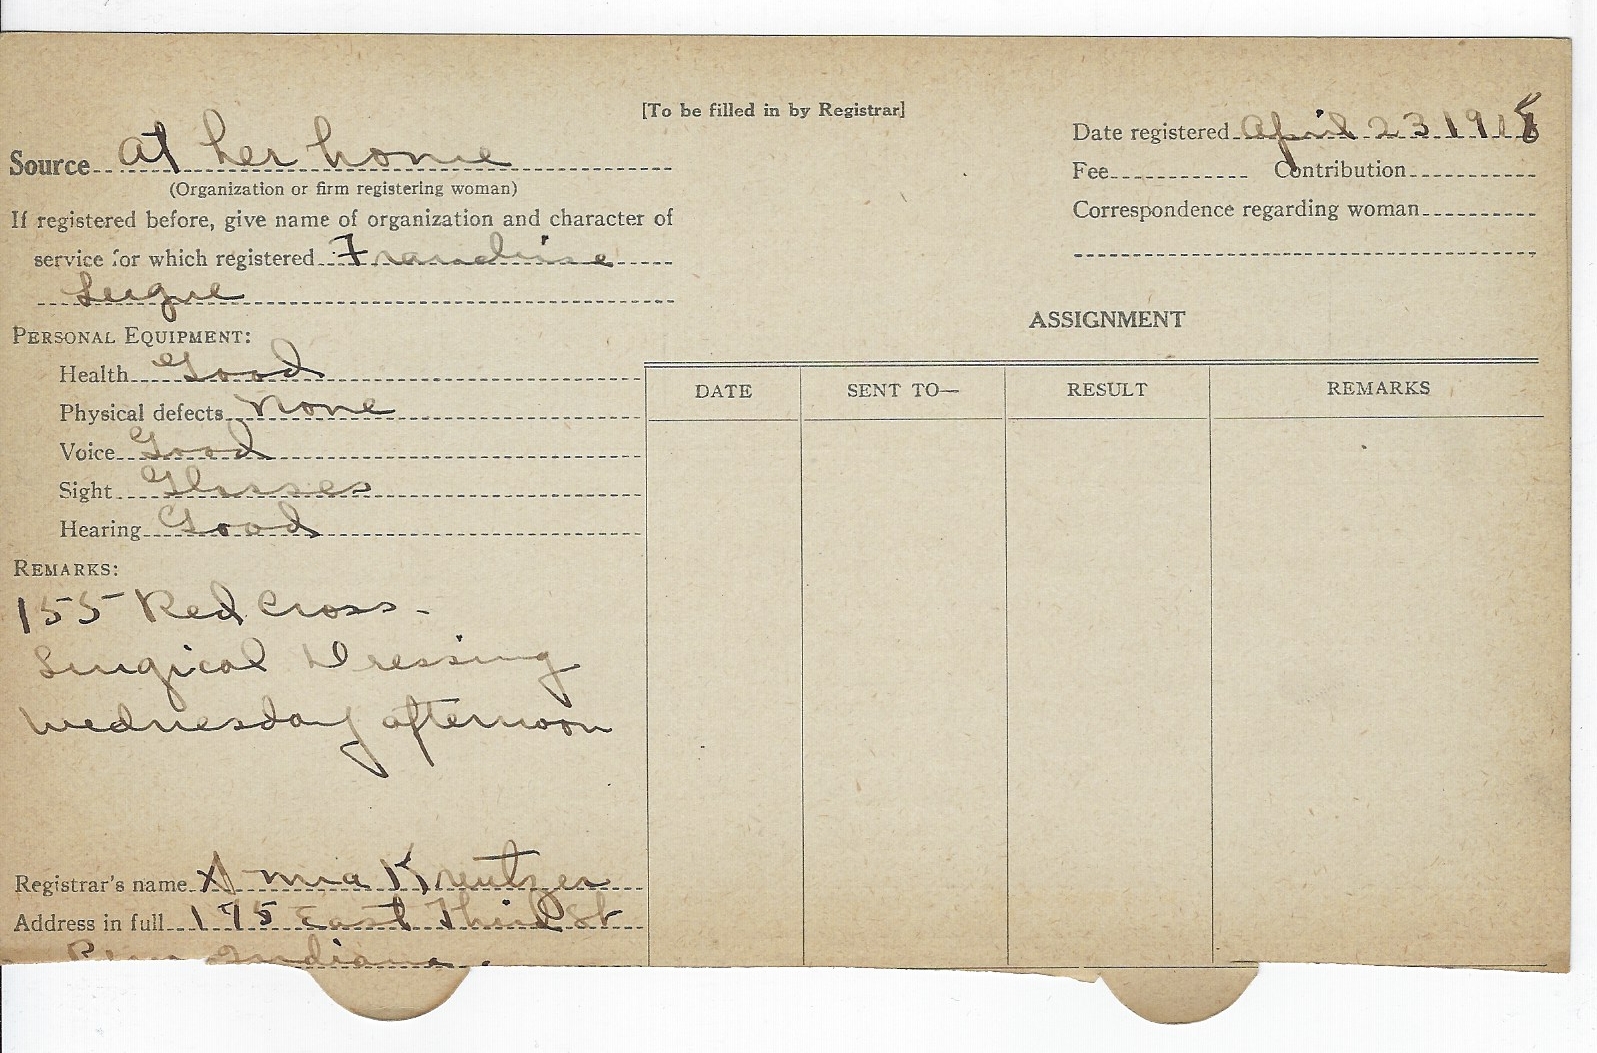 [To be filled in by Registrar]
Source At her home
(Organization or firm registering woman)
If registered before, give name of organization and character of
service for which registered Franchise
League
PERSONAL EQUIPMENT:
Health Good
Physical defects None
Voice Good
Sight Glasses
Hearing Good
REMARKS:
155 Red Cross -
Surgical Dressing
Wednesday afternoon
Registrar's name Anna Kreutzer
Address in full 175 East Third St
Peru Indiana.
Date registered April 23 1918
Fee Contribution
Correspondence regarding woman
ASSIGNMENT
DATE SENT TO— RESULT REMARKS